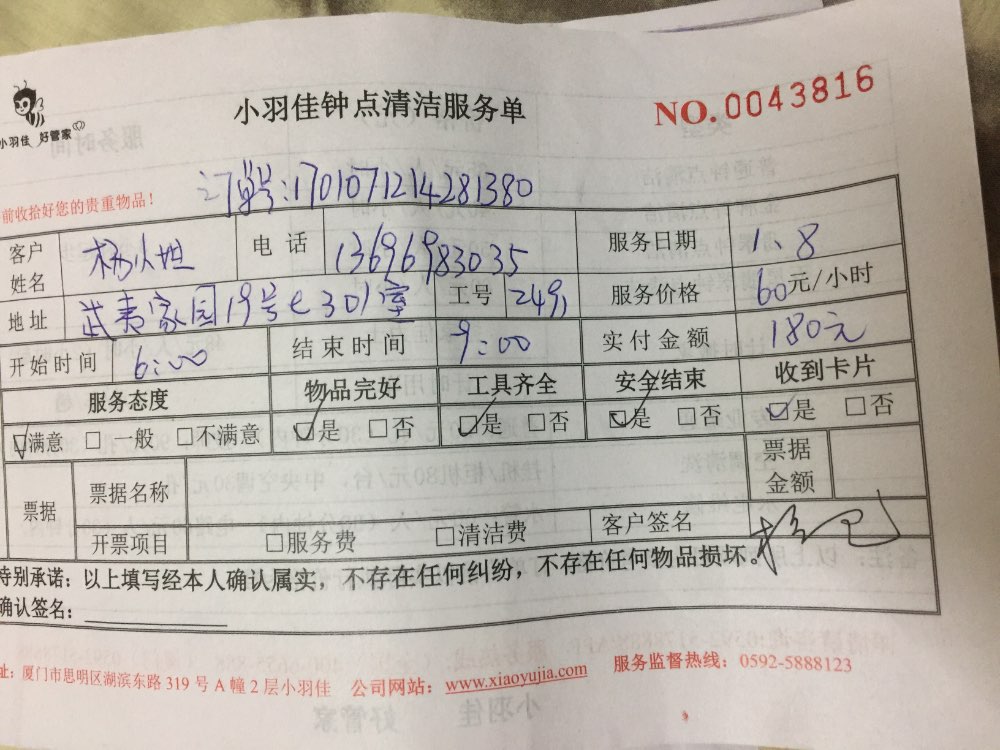 小羽佳 好管家
小羽佳钟点清洁服务单
NO.0043816
前收拾好您的贵重物品！
订单号:1701071214281380
客户姓名 电话 13696983035 服务日期 1、8
地址 武夷家园19号 301室 工号 249 服务价格 60元/小时
开始时间 6:00 结束时间 9:00 实付金额 180元
服务态度 物品完好 工具齐全 安全结束 收到卡片
☑满意 □一般 □不满意 ☑是 □否 ☑是 □否 ☑是 □否 ☑是 □否
票据 票据名称 票据金额
开票项目 □服务费 □清洁费 客户签名
特别承诺：以上填写经本人确认属实，不存在任何纠纷，不存在任何物品损坏。
确认签名：
址：厦门市思明区湖滨东路 319 号 A 幢 2 层小羽佳 公司网站：www.xiaoyujia.com 服务监督热线：0592-5888123